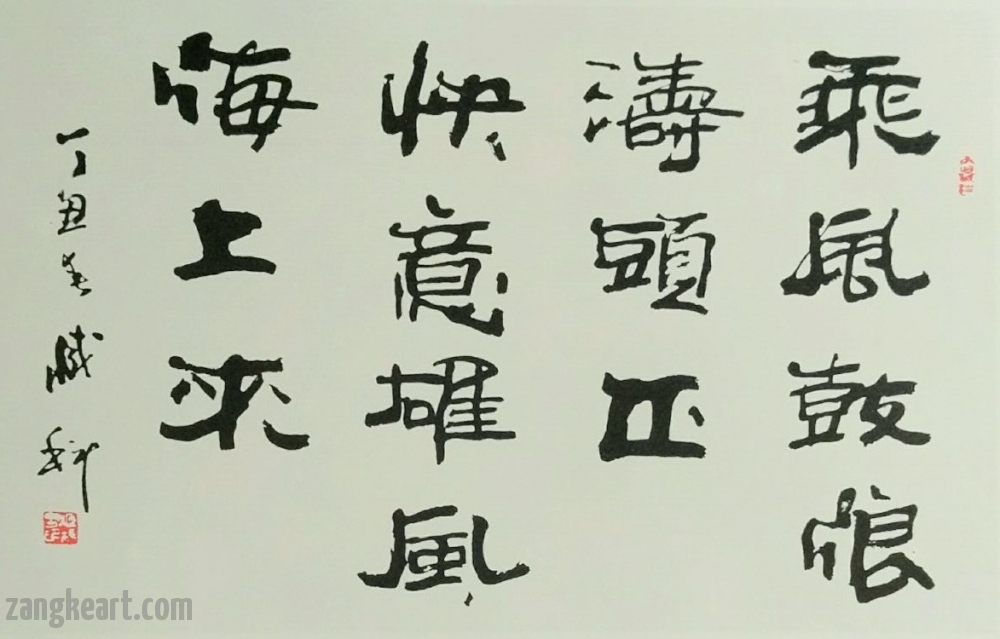 乘風鼓浪
濤頭正
快意雄風
海上來
丁丑冬臧科
zangkeart.com